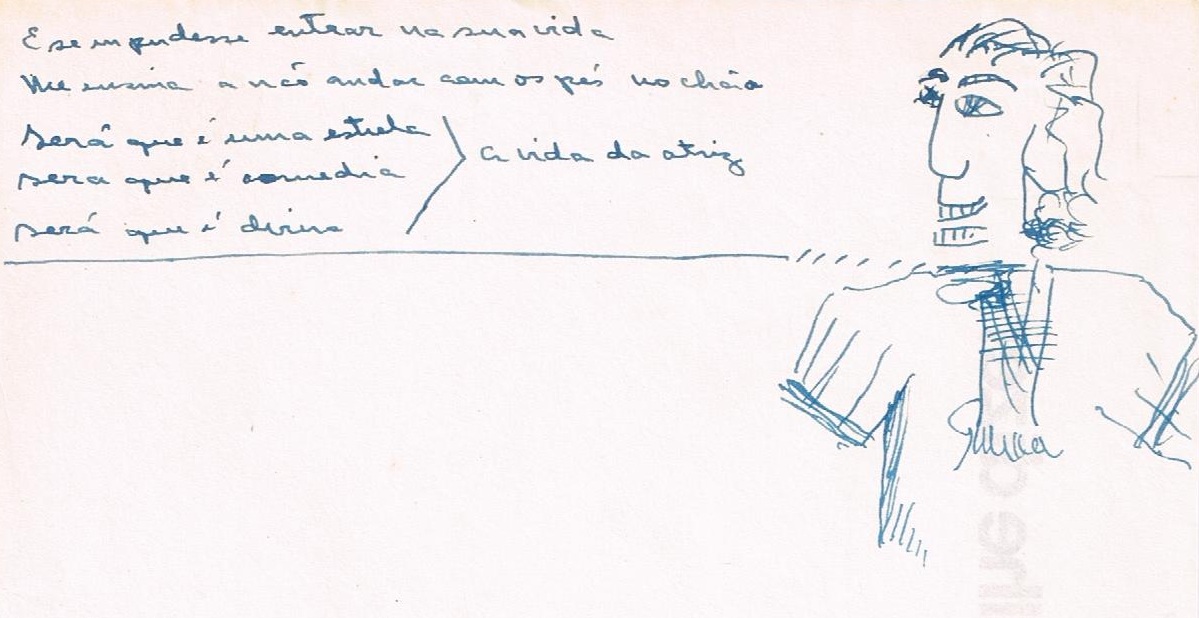 E se eu pudesse entrar na sua vida
Me ensina a não andar com os pés no chão
Será que é uma estrela
sera que é comedia
será que é divina
a vida da atriz